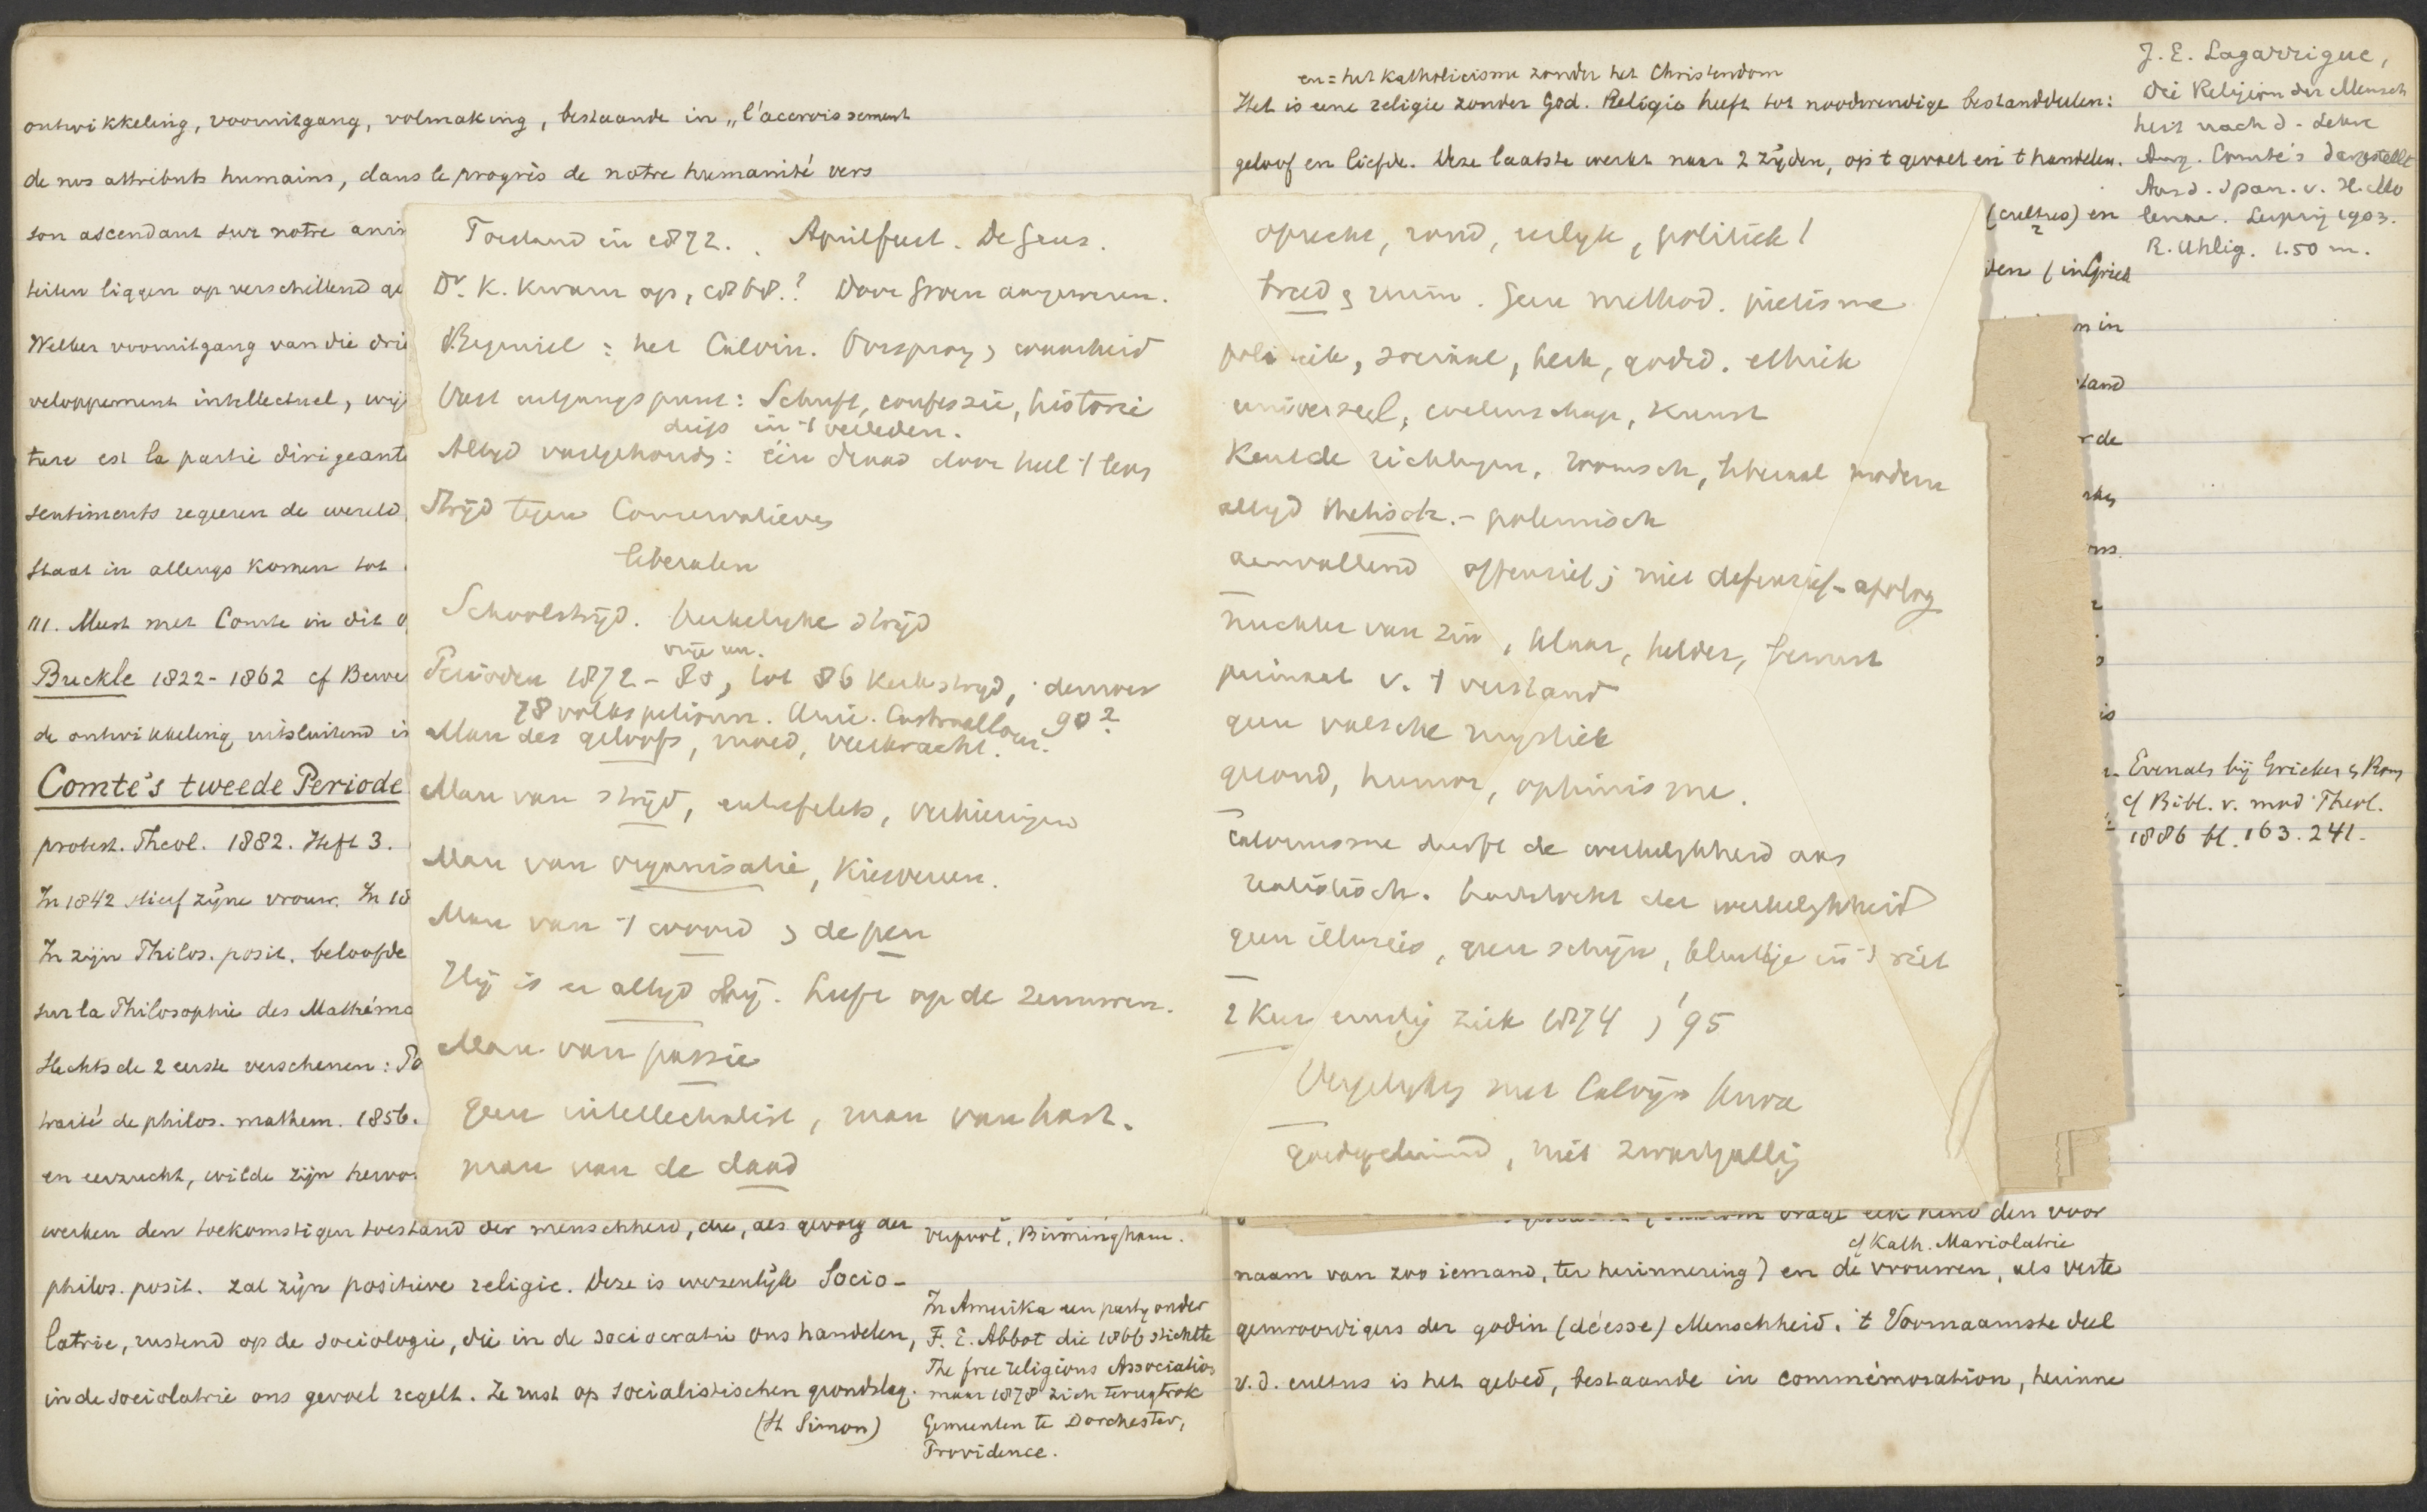 ontwikkeling, vooruitgang, volmaking, bestaande in „l'accroissement
de nos attributs humains, dans le progrès de notre humanité vers
son ascendant sur notre anim
teiten liggen op verschillend ge
Welker vooruitgang van die drie
veloppement intellectuel, wij
ture est la partie dirigeante
sentiments regeeren de wereld
staat in allengs komen tot
III. Meest met Comte in dit o
Buckle 1822-1862 cf Bewe
de ontwikkeling uitsluitend is
Comte's tweede Periode
protest. Theol. 1882. Heft 3.
In 1842 stierf zijne vrouw. In 18
In zijn Philos. posit. beloofde
sur la Philosophie des Mathéma
slechts de 2 eerste verschenen: Po
traité de philos. mathem. 1856.
en eerzucht, wilde zijn hervor
werken den toekomstigen toestand der menschheid, die, als gevolg der
philos. posit. zal zijn positieve religie. Deze is wezenlijk Socio-
latrie, rustend op de sociologie, die in de sociocratie ons handelen,
in de sociolatrie ons gevoel regelt. Ze rust op socialistischen grondslag.
(St Simon)
verpool, Birmingham.
In Amerika een party onder
F. E. Abbot die 1866 stichtte
The free religious Association
maar 1878 zich terugtrok
Gemeenten te Dorchester,
Providence.
Toestand in 1872. Aprilfeest. De Geus.
Dr. K. kwam op, 1868? Door Groen aangewezen.
Beginsel: het Calvin. Oorsprong & waarheid
Vast uitgangspunt: Schrift, confessie, historie
diep in 't verleden.
Altyd vastgehouden: één draad door heel 't leven
Strijd tegen Conservatieven
liberalen
Schoolstrijd. Kerkelyke strijd
vrije un.
Perioden 1872-80, tot 86 kerkstrijd, democr
78 volkspetitionn. Unie. 90?
Man des geloofs, moed, veerkracht.
Man van strijd,
Man van organisatie, kiesveren.
Man van 't woord & de pen
Hij is er altyd bij. Leeft op de zenuwen.
Man van passie
geen intellectualist, man van hart.
man van de daad
oprecht, rond, eerlyk, politiek!
breed & ruim. Geen method. pietisme
politiek, sociaal, kerk, godsd. ethiek
universeel, wetenschap, kunst
Kent de richtingen, roomsch, liberaal modern
altyd thetisch - polemisch
aanvallend offensief; niet defensief-apolog
nuchter van zin, klaar, helder, bewust
primaat v. 't verstand
geen valsche mystiek
gezond, humor, optimisme.
Calvinisme durft de werkelykheid aan
realistisch. der werkelykheid
geen illusies, geen schijn, in 't riet
2 Keer ernstig ziek 1874 & '95
Vergelyking met Calvijn
goedgeluimd, niet zwartgallig
en = het Katholicisme zonder het Christendom
Het is eene religie zonder God. Religie heeft tot noodwendige bestanddeelen:
geloof en liefde. Deze laatste werkt naar 2 zijden, op 't gevoel en 't handelen.
(cultus) en
den (in Griek
n in
tand
r de
is
J. E. Lagarrigue,
Die Religion der Mensch
heit nach d. Lehre
Aug. Comte's dargestellt
Aus d. Span. v. H. Mo
lenaar. Leipzig 1903.
R. Uhlig. 1.50 m.
Evenals bij Grieken & Rom
cf Bibl. v. mod. Theol.
1886 bl. 163. 241.
den voor
cf Kath. Mariolatrie
naam van zoo iemand, ter herinnering) en de vrouwen, als verte
genwoordigers der godin (déesse) Menschheid. 't Voornaamste deel
v. d. cultus is het gebed, bestaande in commémoration, herinne